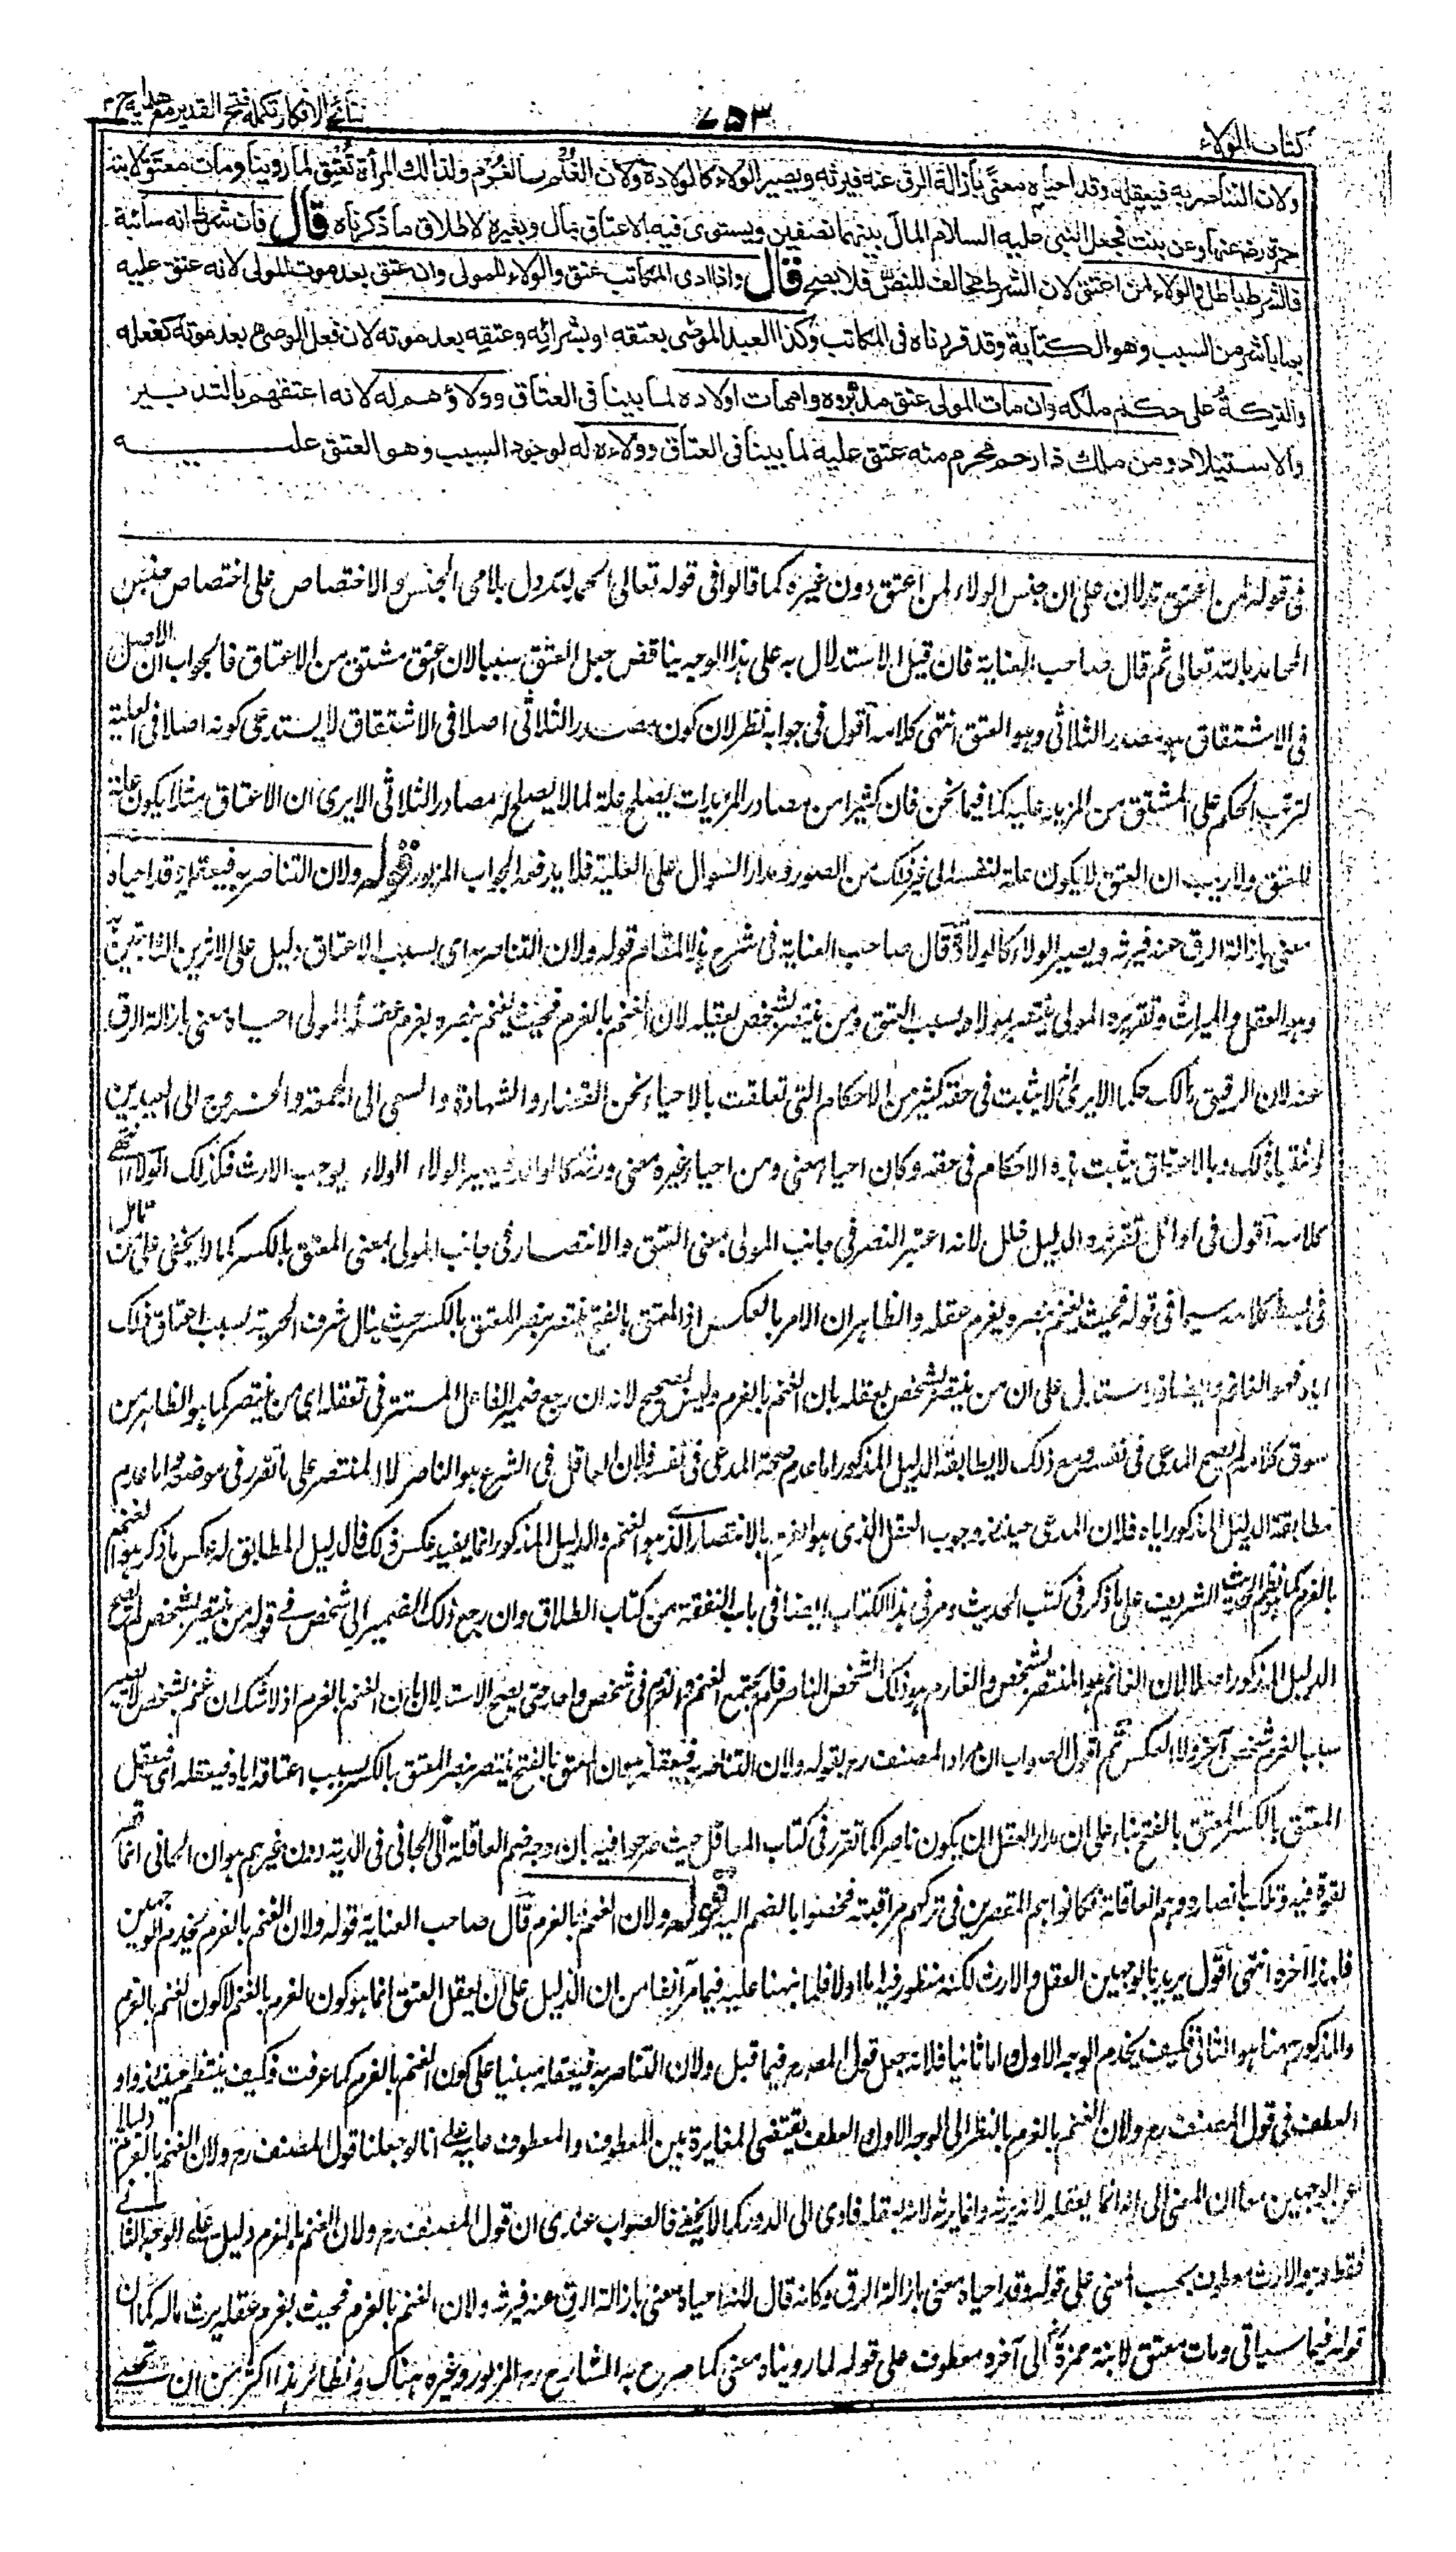 كتاب الولاء
٧٥٣
نتائج الافكار تكملة فتح القدير مع هداية ج ٣
ولان التناصر به فيعقله وقد احياه معنًى بازالة الرق عنه فيرثه ويصير الولاء كالولادة ولان الغُنْم بالغُرْم ولذلك المرأة تُعْتِق لما روينا ومات معتَق لابنة
حمزة رضي عنها وعن بنت فجعل النبي عليه السلام المال بينهما نصفين ويستوى فيه الاعتاق بمال وبغيره لاطلاق ما ذكرناه قال فان شرط انه سائبة
فالشرط باطل والولاء لمن اعتق لان الشرط مخالف للنص فلا يصح قال واذا ادى المكاتب عتق والولاء للمولى وان عتق بعد موت المولى لانه عتق عليه
بما باشر من السبب وهو الكتابة وقد قررناه فى المكاتب وكذا العبد الموصى بعتقه او بشرائه وعتقه بعد موته لان فعل الوصى بعد موته كفعله
والتركة على حكم ملكه وان مات المولى عتق مدبروه وامهات اولاده لما بينا فى العتاق وولاؤهم له لانه اعتقهم بالتدبير
والاستيلاد ومن ملك ذا رحم محرم منه عتق عليه لما بينا فى العتاق وولاءه له لوجود السبب وهو العتق عليه
فى قوله لمن اعتق تدلان على ان جنس الولاء لمن اعتق دون غيره كما قالوا فى قوله تعالى الحمد لله تدل بلامى الجنس والاختصاص على اختصاص جنس
المحامد بالله تعالى ثم قال صاحب العناية فان قيل الاستدلال به على هذا الوجه يناقض جعل العتق سببا لان اعتق مشتق من الاعتاق فالجواب ان الاصل
فى الاشتقاق هو مصدر الثلاثى وهو العتق انتهى كلامه اقول فى جوابه نظر لان كون مصدر الثلاثى اصلا فى الاشتقاق لا يستدعى كونه اصلا فى العلية
لترتب الحكم على المشتق من المزيد عليه كما فيما نحن فان كثيرا من مصادر المزيدات يصلح علة لما لا يصلح له مصادر الثلاثى الا يرى ان الاعتاق مثلا يكون علة
للعتق ولا ريب ان العتق لا يكون علة لنفسه الى غير ذلك من الصور ومدار السوال على العلية فلا يدفعه الجواب المزبور قوله ولان التناصر به فيعقله وقد احياه
معنى بازالة الرق عنه فيرثه ويصير الولاء كالولادة قال صاحب العناية فى شرح هذا المقام قوله ولان التناصر به اى بسبب الاعتاق دليل على الامرين الثابتين
وهو العقل والميراث وتقريره المولى ينتصر بمولاه بسبب العتق ومن ينتصر بشخص يعقله لان الغنم بالغرم فحيث يغنم بنصره يغرم عقله والمولى احياه معنى بازالة الرق
عنه لان الرقيق هالك حكما الا يرى انه لا يثبت فى حقه كثير من الاحكام التى تعلقت بالاحياء نحو القضاء والشهادة والسعى الى الجمعة والخروج الى العيدين
وبالاعتاق يثبت هذه الاحكام فى حقه وكان احياء معنى ومن احيا غيره معنى ورثه كالوالد الولاء يوجب الارث فكذلك الولاء انتهى
كلامه اقول فى اوائل تقريره الدليل خلل لانه اعتبر النصر فى جانب المولى بمعنى المعتق والانتصار فى جانب المولى بمعنى المعتق بالكسر كما لا يخفى على من تامل
فى بسط كلامه سيما فى قوله فحيث يغنم بنصره يغرم عقله والظاهر ان الامر بالعكس اذ المعتق بالفتح ينتصر بنصر المعتق بالكسر حيث ينال شرف الحرية بسبب اعتاق ذلك
اياه فهو الغانم وايضا استدل على ان من ينتصر بشخص يعقله بان الغنم بالغرم وليس بصحيح لانه ان رجع ضمير الفاعل المستتر فى تعقله الى من ينتصر كما هو الظاهر من
سوق كلامه لم يصح المدعى فى نفسه ومع ذلك لا يطابقه الدليل المذكور اما عدم صحة المدعى فى نفسه فلان العاقل فى الشرع هو الناصر لا المنتصر على ما تقرر فى موضعه واما عدم
مطابقة الدليل المذكور اياه فلان المدعى حينئذ وجوب العقل الذى هو الغرم بالانتصار الذى هو الغنم والدليل المذكور انما يفيد عكس ذلك فالدليل المطابق له عكس ما ذكر هو الغنم
بالغرم كما هو نظم الحديث الشريف على ما ذكر فى كتب الحديث ومر فى هذا الكتاب ايضا فى باب النفقة من كتاب الطلاق وان رجع ذلك الضمير الى شخص فى قوله من ينتصر بشخص لم يصح
الدليل المذكور اصلا لان الغانم هو المنتصر بشخص والغارم هو ذلك الشخص الناصر فلم يجتمع الغنم والغرم فى شخص واحد حتى يصح الاستدلال بان الغنم بالغرم اذ لا شك ان غنم شخص لا يصير
سببا لغرم شخص آخر ولا العكس ثم اقول الصواب ان مراد المصنف ره بقوله ولان التناصر به فيعقله هو ان المعتق بالفتح ينتصر بنصر المعتق بالكسر بسبب اعتاقه اياه فيعقله اى فيعقل
المعتق بالكسر المعتق بالفتح بناء على ان مدار العقل ان يكون ناصرا كما تقرر فى كتاب المعاقل حيث صرحوا فيه بان وجه ضم العاقلة الى الجانى فى الدية دون غيرهم هو ان الجانى انما قصر
لقوة فيه وتلك بانصاره وهم العاقلة فكانوا هم المقصرين فى تركهم مراقبته فخصوا بالضم اليه قوله ولان الغنم بالغرم قال صاحب العناية قوله ولان الغنم بالغرم يخدم الوجهين
انتهى اقول يريد بالوجهين العقل والارث لكنه منظور فيه اما اولا فلما نبهنا عليه فيما مر آنفا من ان الدليل على ان يعقل العتق انما هو كون الغرم بالغنم لا كون الغنم بالغرم
والمذكور ههنا هو الثانى فكيف يخدم الوجه الاول واما ثانيا فلانه جعل قول المص ره فيما قبل ولان التناصر به فيعقله مبنيا على كون الغنم بالغرم كما عرفت فكيف ينتظم حينئذ واو
العطف فى قول المصنف ره ولان الغنم بالغرم بالنظر الى الوجه الاول والعطف يقتضى المغايرة بين المعطوف والمعطوف عليه على انا لو جعلنا قول المصنف ره ولان الغنم بالغرم دليلا
على الوجهين معا ان المعنى الى انه انما يعقله لانه يرثه وانما يرثه لانه يعقله فادى الى الدور كما لا يخفى فالصواب عندى ان قول المصنف ره ولان الغنم بالغرم دليل على الوجه الثانى
فقط وهو الارث معطوف بحسب المعنى على قوله وقد احياه معنى بازالة الرق وكانه قال لانه احياه معنى بازالة الرق عنه فيرثه ولان الغنم بالغرم فحيث يغرم عقله يرث ماله كما ان
قوله فيما سياتى ومات معتق لابنة حمزة رض الى آخره معطوف على قوله لما رويناه معنى كما صرح به الشارح ره المزبور وغيره هناك ونظائر هذا اكثر من ان تحصى